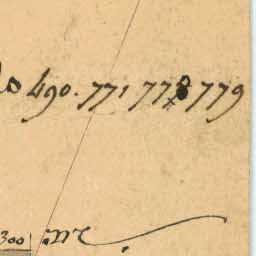 490. 771 778 779
300 m